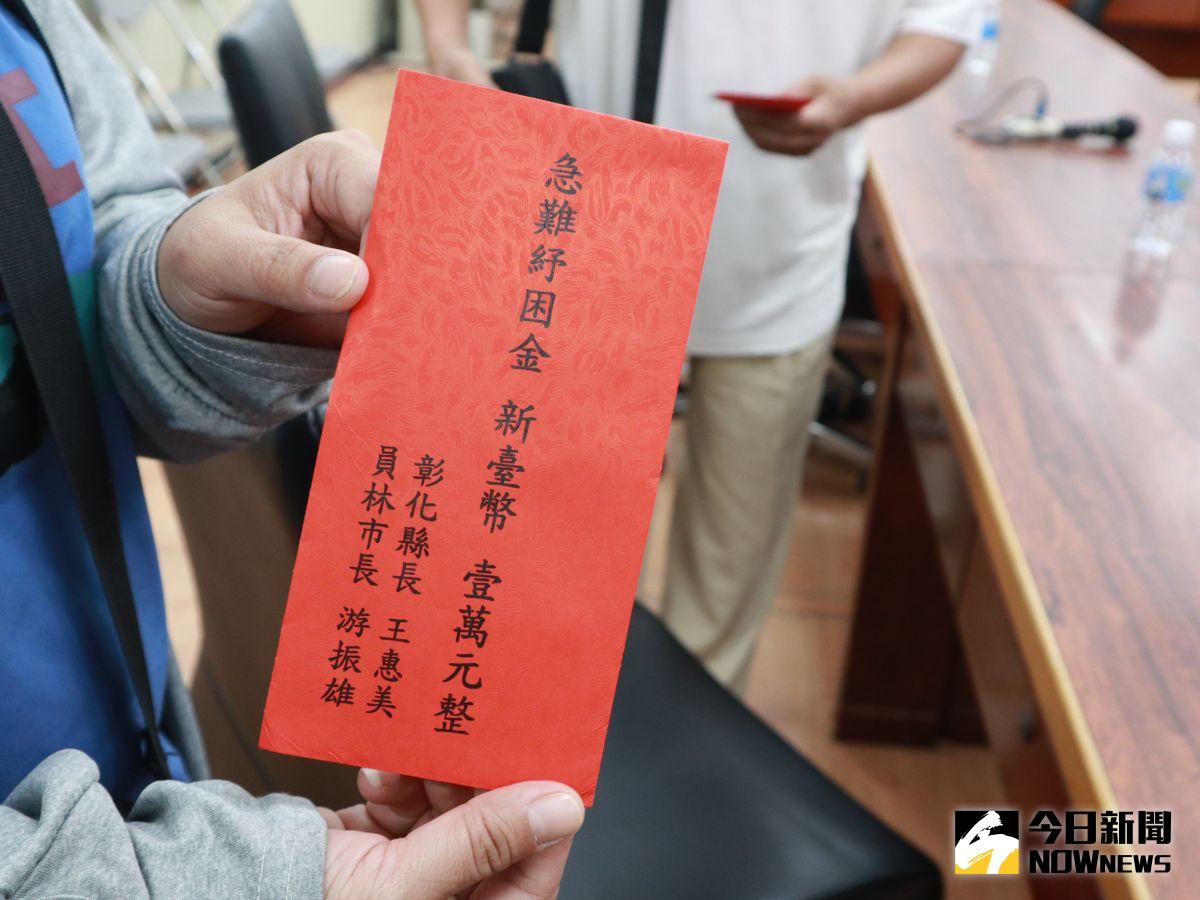 急難紓困金 新臺幣 壹萬元整
彰化縣長 王惠美
員林市長 游振雄
今日新聞
NOWNEWS